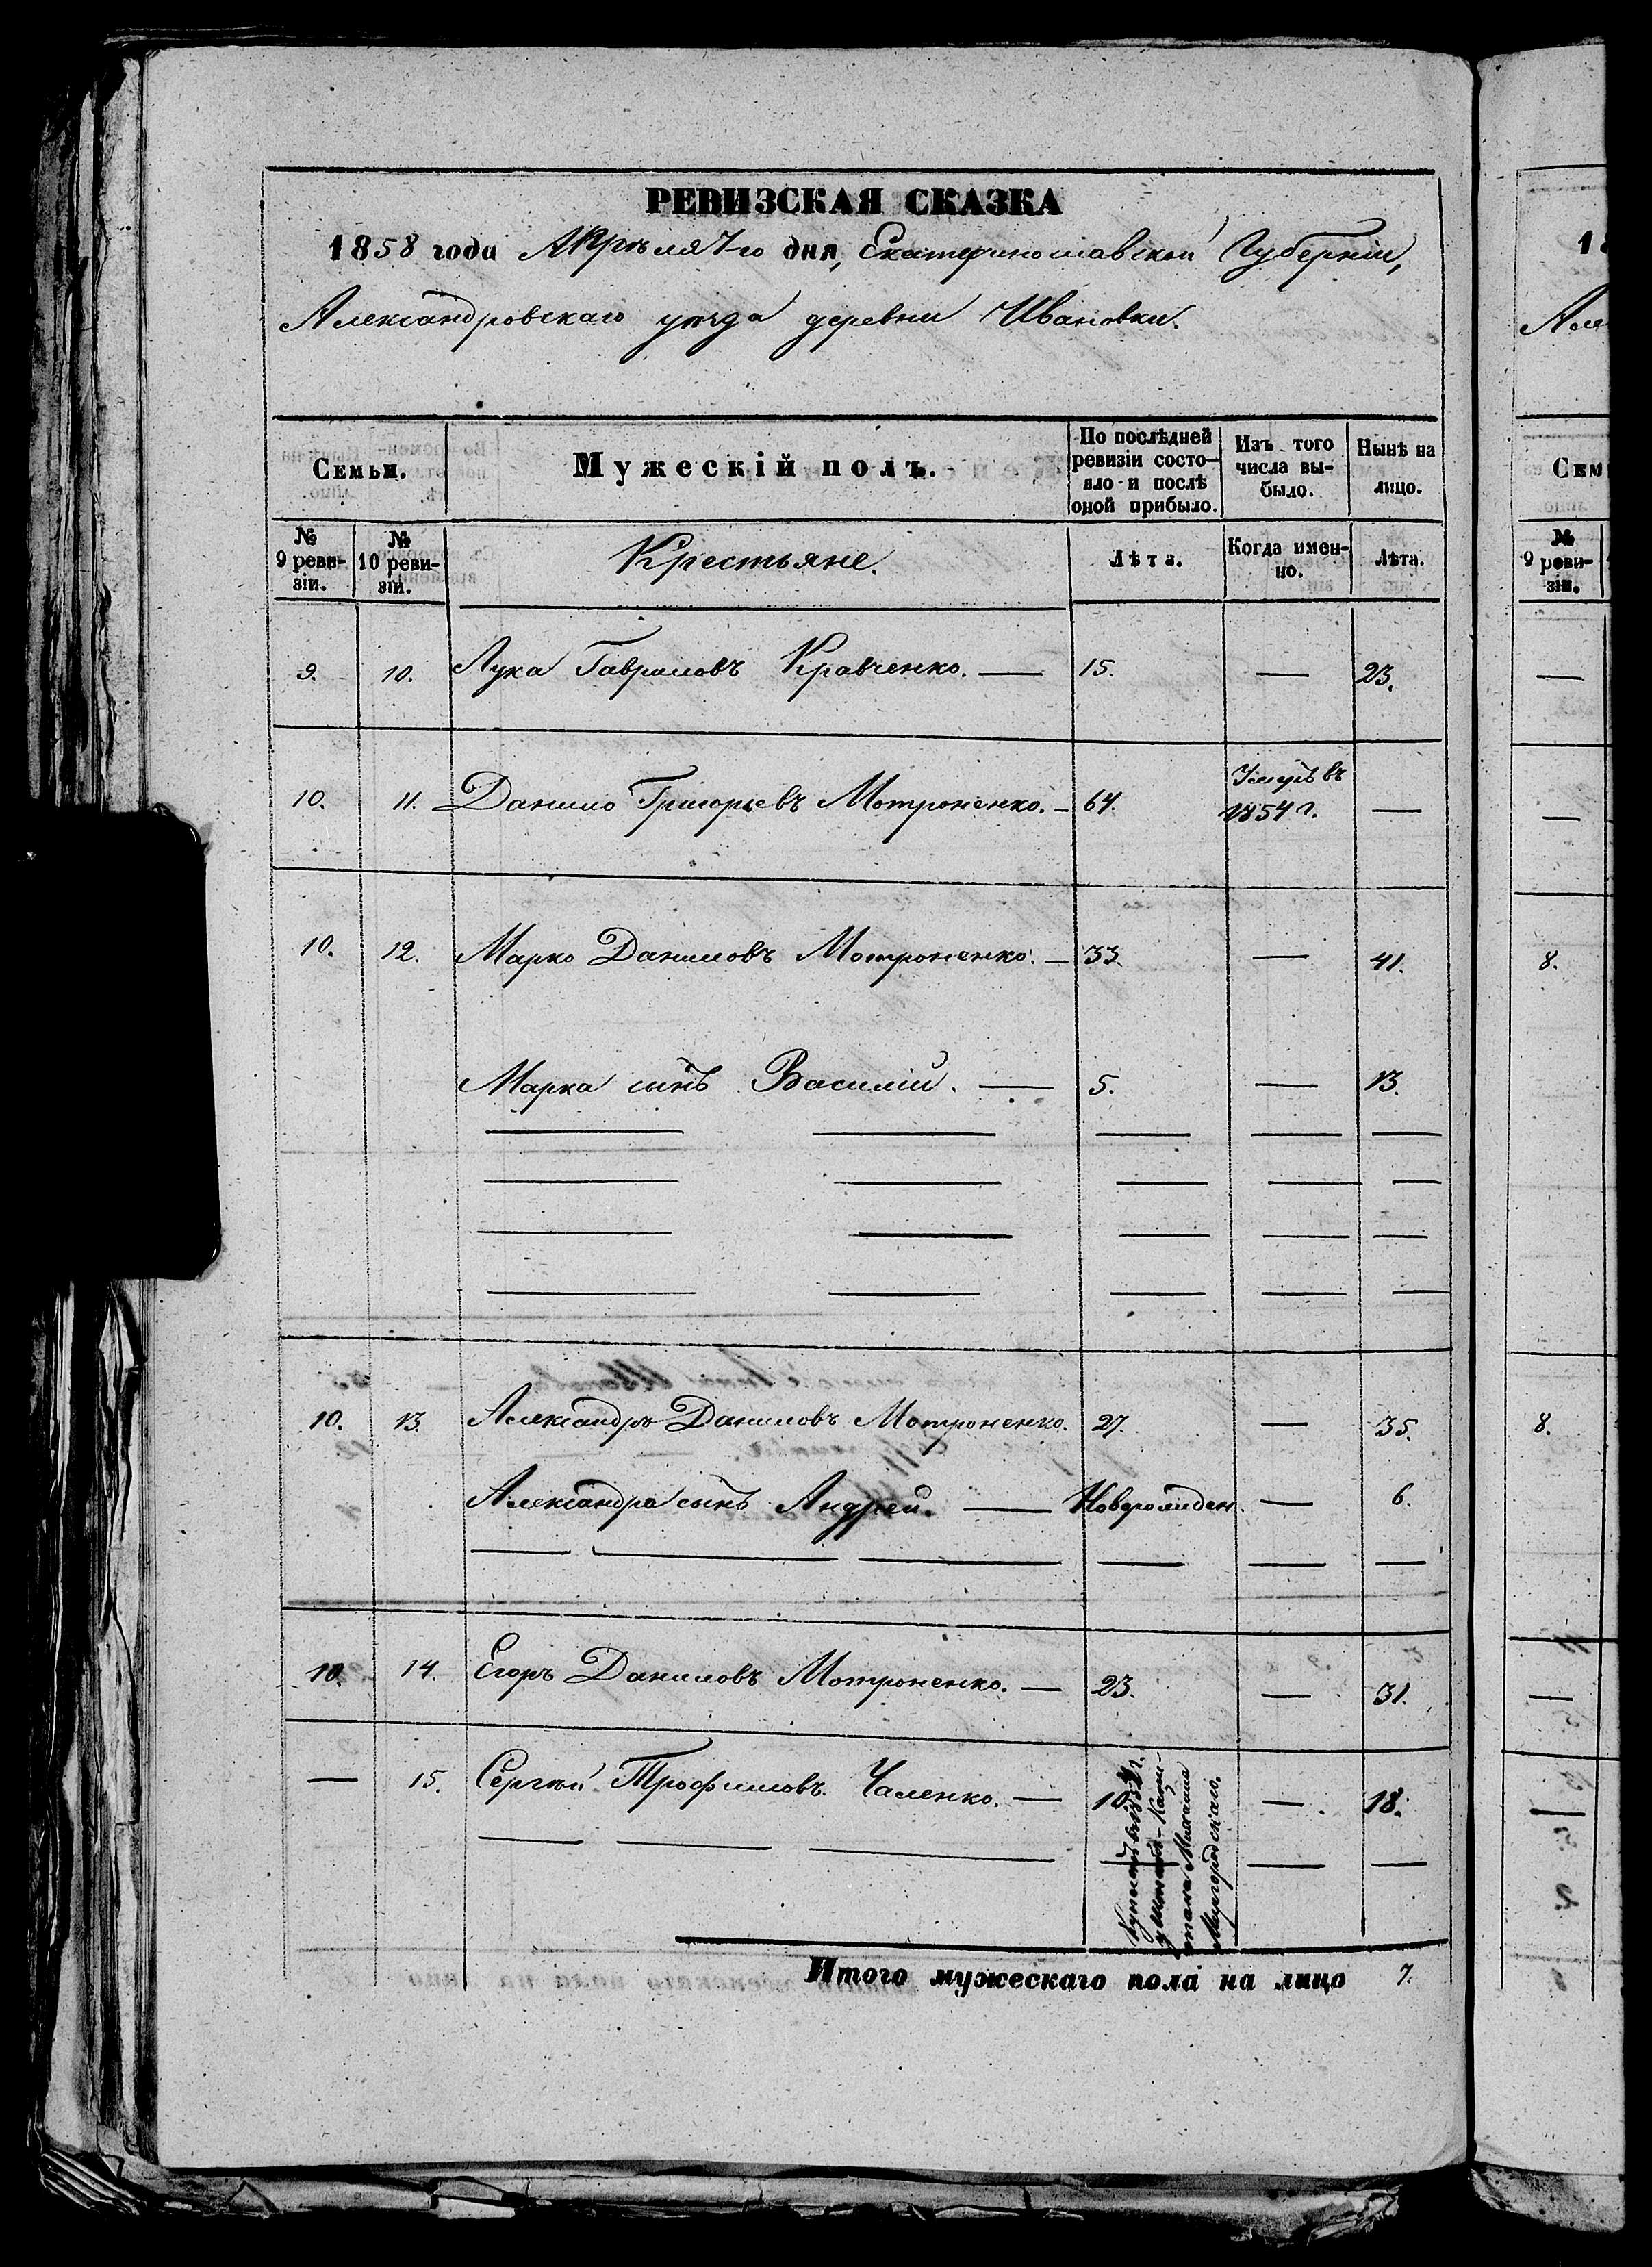 РЕВИЗСКАЯ СКАЗКА
1858 года Апрѣля 7го дня, Екатеринославской Губерніи,
Александровскаго уѣзда деревни Ивановки.
Семьи.
Мужескій полъ.
По послѣдней ревизіи состо-
яло и послѣ
оной прибыло.
Изъ того
числа вы-
было.
Нынѣ на
лицо.
№
9 реви-
зіи.
№
10 реви-
зіи.
Крестьяне.
Лѣта.
Когда имен-
но.
Лѣта.
9. 10. Лука Гавриловъ Кравченко. — 15. — 23.
10. 11. Данило Григорьевъ Мотроненко. — 64. Умеръ въ
1854 г. —
10. 12. Марко Даниловъ Мотроненко. — 33. — 41.
Марка сынъ Василій. — 5. — 13.
10. 13. Александръ Даниловъ Мотроненко. 27. — 35.
Александра сынъ Андрей. — Новорожден. — 6.
10. 14. Егоръ Даниловъ Мотроненко. — 23. — 31.
— 15. Сергѣй Трофимовъ Чаленко. — 10 — 18.
Миргородскаго.
Итого мужескаго пола на лицо 7.
Але
Сем
№
9 реви-
зіи.
8.
8.